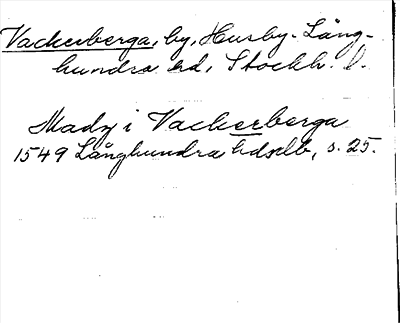 Vackerberga, by, Husby-Lång-
hundra sd, Stockh. l.
Mads i Vackerberga
1549 Långhundra hdsdb, s. 25.